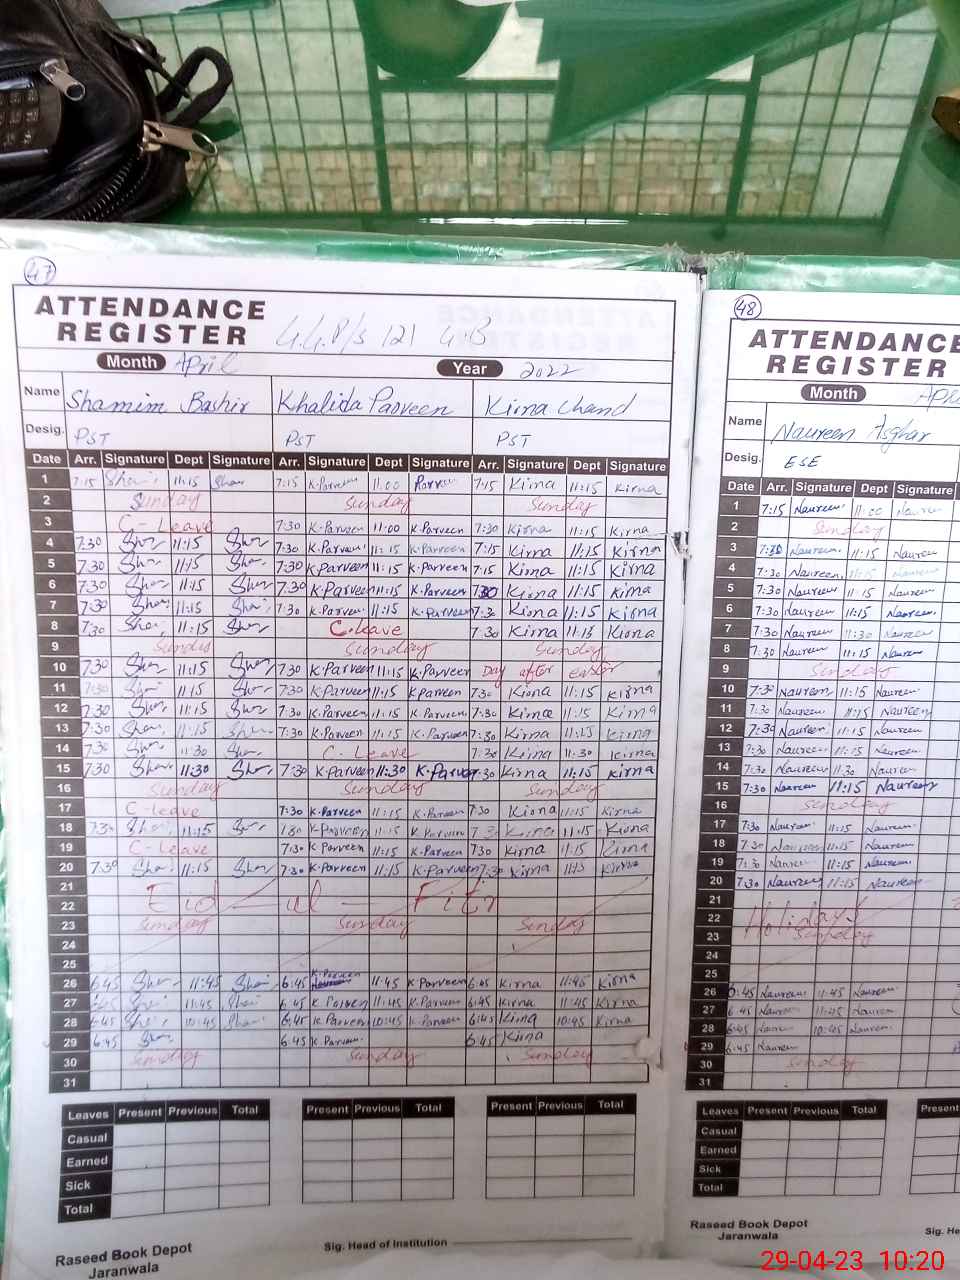 47
ATTENDANCE
REGISTER
G.G.P/S 121 G.B
Month April Year 2022
Name Shamim Bashir Khalida Parveen Kirna Chand
Desig. PST PST PST
Date Arr. Signature Dept Signature Arr. Signature Dept Signature Arr. Signature Dept Signature
1 7:15 11:15 7:15 K.Parveen 11:00 Parveen 7:15 Kirna 11:15 Kirna
2 Sunday Sunday Sunday
3 C-Leave 7:30 K.Parveen 11:00 K.Parveen 7:30 Kirna 11:15 Kirna
4 7:30 11:15 7:30 K.Parveen 11:15 K.Parveen 7:15 Kirna 11:15 Kirna
5 7:30 11:15 7:30 K.Parveen 11:15 K.Parveen 7:15 Kirna 11:15 Kirna
6 7:30 11:15 7:30 K.Parveen 11:15 K.Parveen 7:30 Kirna 11:15 Kirna
7 7:30 11:15 7:30 K.Parveen 11:15 K.Parveen 7:30 Kirna 11:15 Kirna
8 7:30 11:15 C.Leave 7:30 Kirna 11:15 Kirna
9 Sunday Sunday
10 7:30 11:15 7:30 K.Parveen 11:15 K.Parveen Day after easter
11 7:30 11:15 7:30 K.Parveen 11:15 K.Parveen 7:30 Kirna 11:15 Kirna
12 7:30 11:15 7:30 K.Parveen 11:15 K.Parveen 7:30 Kirna 11:15 Kirna
13 7:30 11:15 7:30 K.Parveen 11:15 K.Parveen 7:30 Kirna 11:15 Kirna
14 7:30 11:30 C-Leave 7:30 Kirna 11:30 Kirna
15 7:30 11:30 7:30 K.Parveen 11:30 K.Parveen 7:30 Kirna 11:15 Kirna
16 Sunday Sunday Sunday
17 C-leave 7:30 K.Parveen 11:15 K.Parveen 7:30 Kirna 11:15 Kirna
18 7:30 11:15 K.Parveen 11:15 K.Parveen 7:30 Kirna 11:15 Kirna
19 C-Leave 7:30 K.Parveen 11:15 K.Parveen 7:30 Kirna 11:15 Kirna
20 7:30 11:15 7:30 K.Parveen 11:15 K.Parveen 7:30 Kirna 11:15 Kirna
21
22 Eid-ul-Fitr
23 Sunday Sunday Sunday
24
25
26 6:45 11:45 6:45 K.Parveen 11:45 K.Parveen 6:45 Kirna 11:45 Kirna
27 6:45 11:45 6:45 K.Parveen 11:45 K.Parveen 6:45 Kirna 11:45 Kirna
28 6:45 10:45 6:45 K.Parveen 10:45 K.Parveen 6:45 Kirna 10:45 Kirna
29 6:45 6:45 K.Parveen 6:45 Kirna
30 Sunday Sunday Sunday
31
Leaves Present Previous Total Present Previous Total Present Previous Total
Casual
Earned
Sick
Total
Sig. Head of Institution
Raseed Book Depot
Jaranwala
48
ATTENDANCE
REGISTER
Month
Name Naureen Asghar
Desig. ESE
Date Arr. Signature Dept Signature
1 7:15 Naureen 11:00 Naureen
2 Sunday
3 7:30 Naureen 11:15 Naureen
4 7:30 Naureen 11:15 Naureen
5 7:30 Naureen 11:15 Naureen
6 7:30 Naureen 11:15 Naureen
7 7:30 Naureen 11:30 Naureen
8 7:30 Naureen 11:15 Naureen
9 Sunday
10 7:30 Naureen 11:15 Naureen
11 7:30 Naureen 11:15 Naureen
12 7:30 Naureen 11:15 Naureen
13 7:30 Naureen 11:15 Naureen
14 7:30 Naureen 11:30 Naureen
15 7:30 Naureen 11:15 Naureen
16 Sunday
17 7:30 Naureen 11:15 Naureen
18 7:30 Naureen 11:15 Naureen
19 7:30 Naureen 11:15 Naureen
20 7:30 Naureen 11:15 Naureen
21
22 Holidays
23 Sunday
24
25
26 6:45 Naureen 11:45 Naureen
27 6:45 Naureen 11:45 Naureen
28 6:45 Naureen 10:45 Naureen
29 6:45 Naureen
30 Sunday
31
Leaves Present Previous Total Present
Casual
Earned
Sick
Total
Raseed Book Depot
Jaranwala
29-04-23 10:20